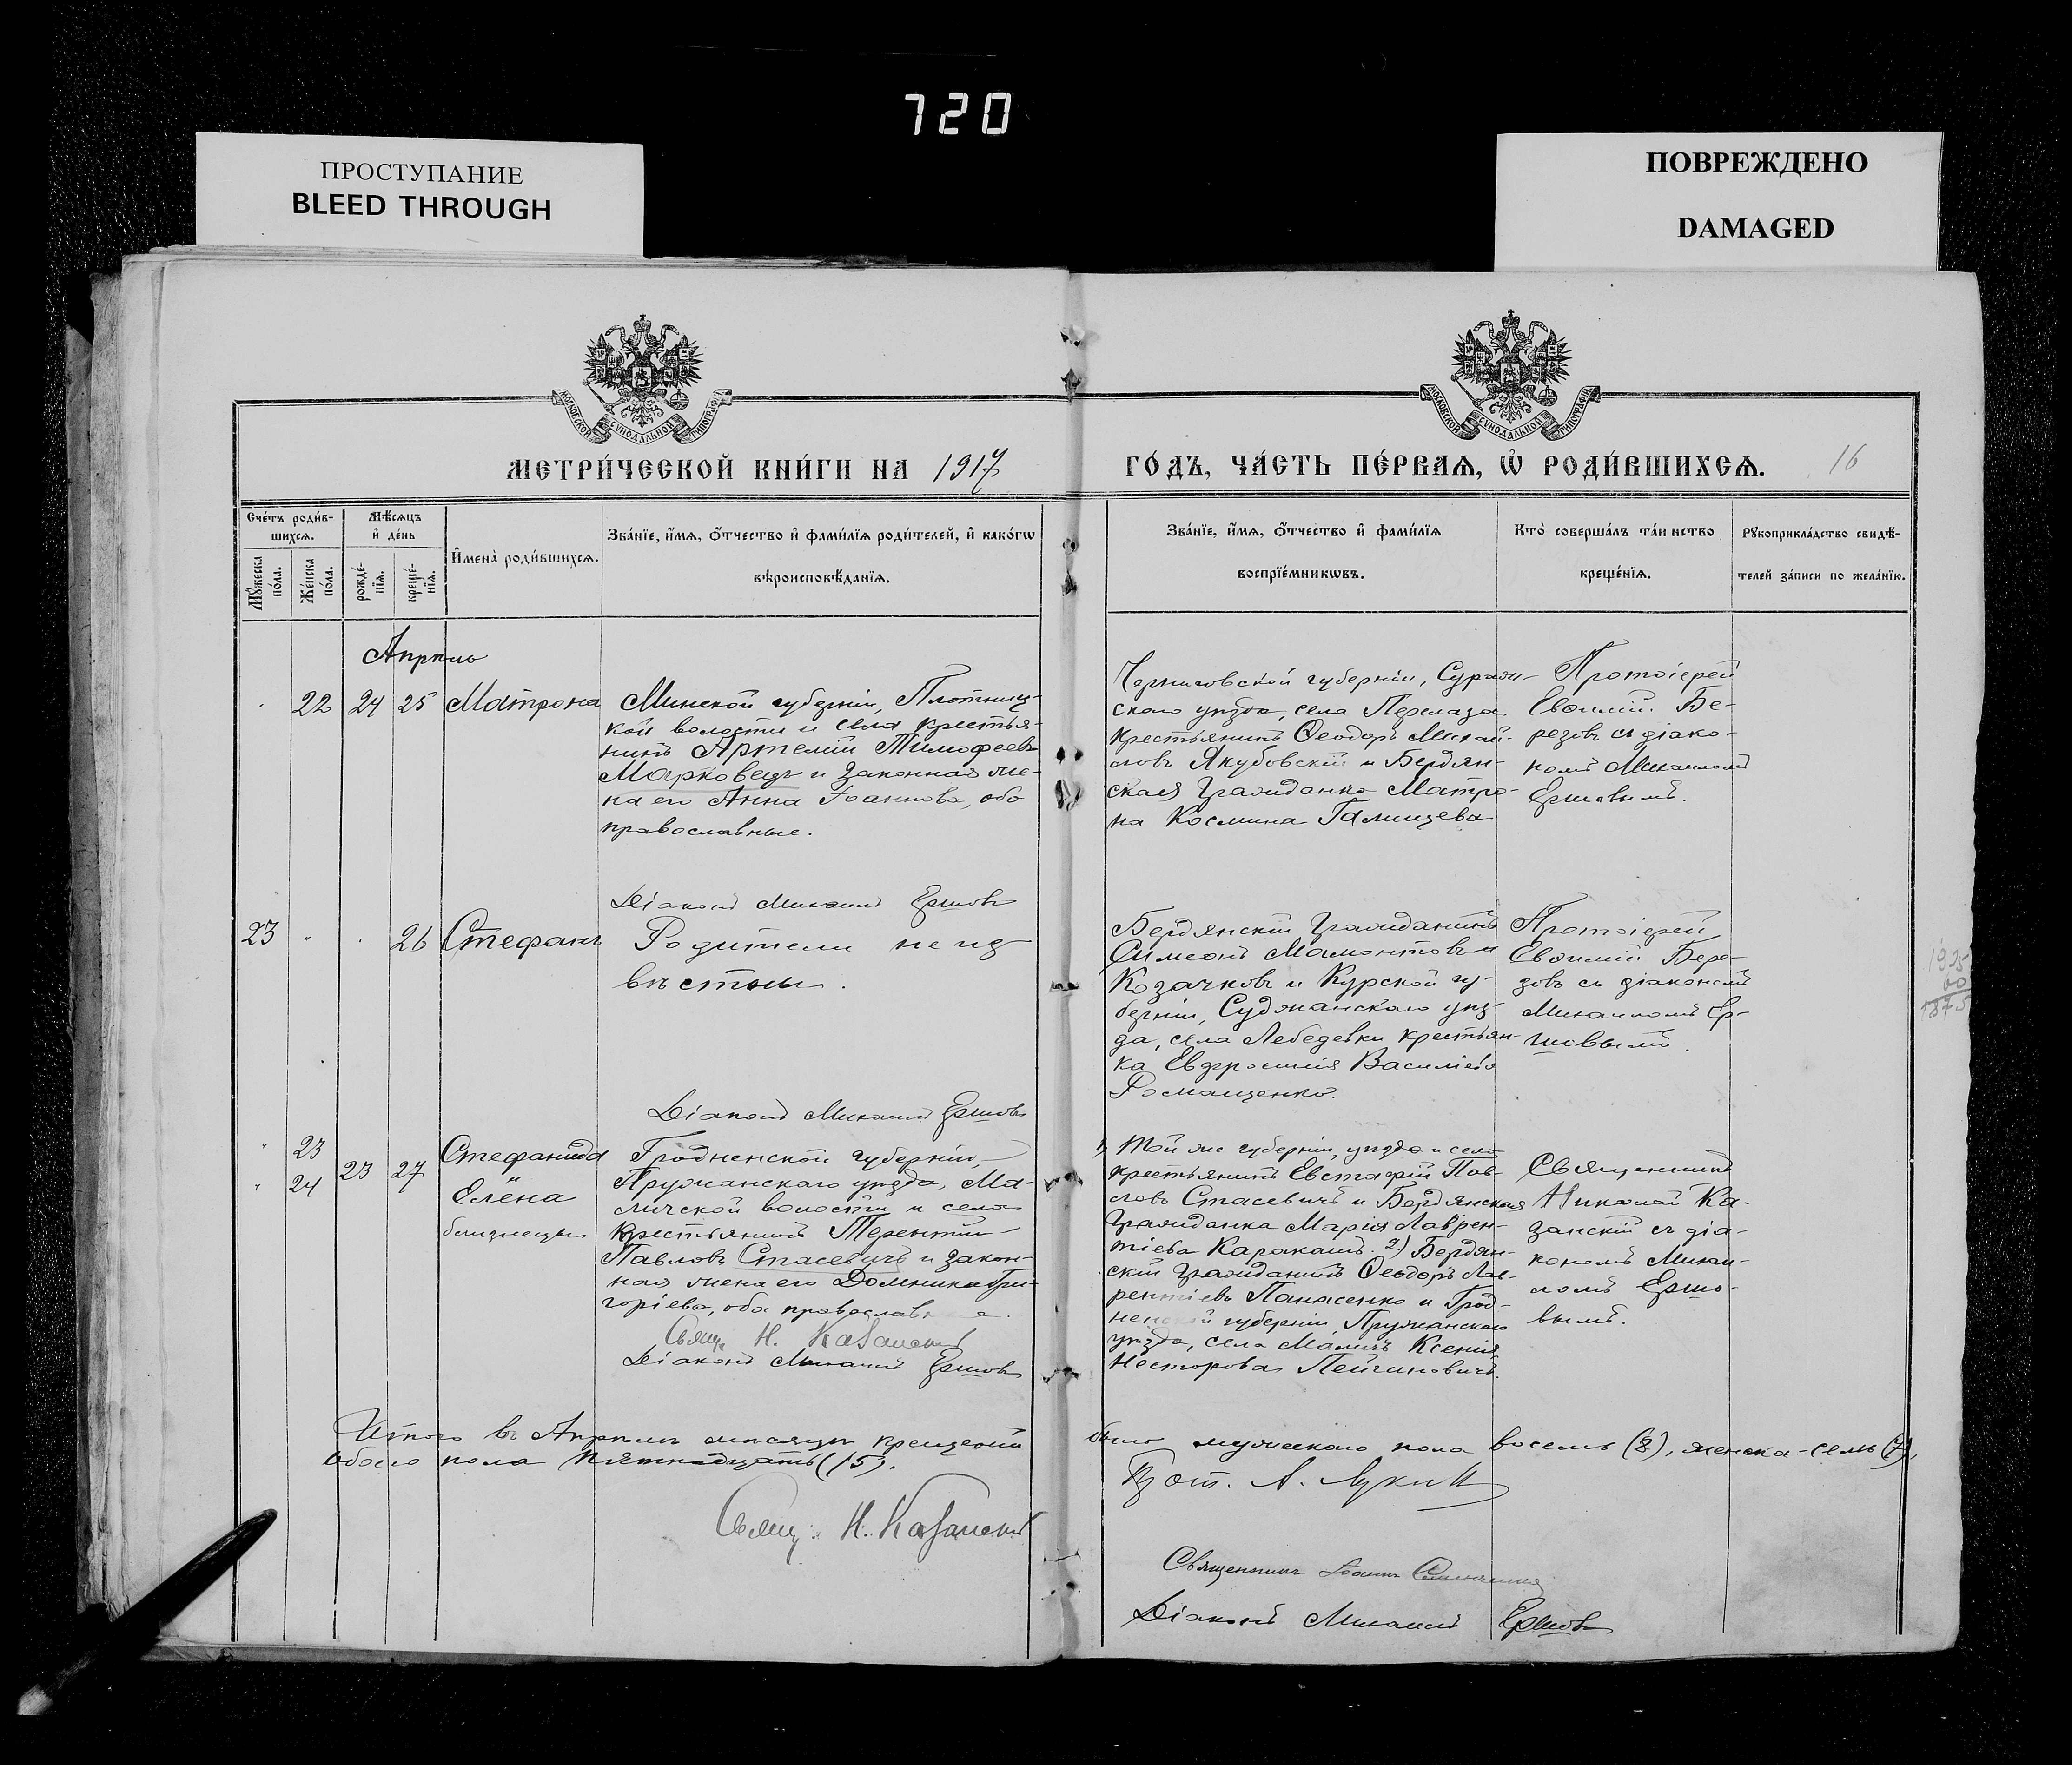 720
ПРОСТУПАНИЕ
BLEED THROUGH
ПОВРЕЖДЕНО
DAMAGED
МОСКОВСКОЙ СУНОДАЛЬНОЙ ТИПОГРАФІИ
МОСКОВСКОЙ СУНОДАЛЬНОЙ ТИПОГРАФІИ
МЕТРИ́ЧЕСКОЙ КНИ́ГИ НА 1917
ГО́ДЪ, ЧА́СТЬ ПЕ́РВАѦ, Ѡ҆ РОДИ́ВШИХСѦ. 16
Сче́тъ роди́в-
шихсѧ.
Мꙋ́жеска по́ла.
Же́нска по́ла.
Мѣ́сѧцъ
и҆ де́нь
рожде́-
нїѧ.
креще́-
нїѧ.
И҆мена̀ роди́вшихсѧ.
Зва́нїе, и҆́мѧ, ѻ҆́тчество и҆ фами́лїѧ роди́телей, и҆ како́гѡ
вѣроисповѣ́данїѧ.
Зва́нїе, и҆́мѧ, ѻ҆́тчество и҆ фами́лїѧ
воспрїе́мникѡвъ.
Кто̀ соверша́лъ та́инство
креще́нїѧ.
Рꙋкоприкла́дство свидѣ́-
телей за́писи по жела́нїю.
Апрѣль
22 24 25 Матрона
Минской губерніи, Плотниц-
кой волости и села крестья-
нинъ Артемій Тимофеевъ
Марковецъ и законная же-
на его Анна Іоаннова, оба
православные.
Діаконъ Михаилъ Ершовъ
Черниговской губерніи, Сураж-
скаго уѣзда, села Перелаза
крестьянинъ Ѳеодоръ Михай-
ловъ Якубовскій и Бердян-
ская гражданка Матро-
на Космина Галицева
Протоіерей
Евѳимій Бе-
резовъ съ діако-
номъ Михаиломъ
Ершовымъ.
23 26 Стефанъ
Родители неиз
вѣстны.
Діаконъ Михаилъ Ершовъ
Бердянскій гражданинъ
Симеонъ Мамонтовъ
Козачковъ и Курской гу-
берніи, Суджанскаго уѣз-
да, села Лебедевки крестьян-
ка Евфросинія Василіева
Романенко.
Протоіерей
Евѳимій Бере-
зовъ съ діакономъ
Михаиломъ Ер-
шовымъ.
1935
60
1875
23
24
23 27
Стефанида
Елена
близнецы
Гродненской губерніи,
Пружанскаго уѣзда, Ма-
личской волости и села
крестьянинъ Терентій
Павловъ Стасевичъ и закон-
ная жена его Домникия Гри-
горіева, оба православн е.
Свящ. Н. Казанскій
Діаконъ Михаилъ Ершовъ
1) Той же губерніи, уѣзда и села
крестьянинъ Евстафій Пав-
ловъ Стасевичъ и Бердянская
гражданка Марія Лаврен-
тіева Каракашъ. 2) Бердян-
скій гражданинъ Ѳеодоръ Лав-
рентіевъ Панасенко и Грод-
ненской губерніи, Пружанскаго
уѣзда, села Маличъ Ксенія
Несторова
Священникъ
Николай Ка-
занскій съ діа-
кономъ Михаи-
ломъ Ершо-
вымъ.
Итого въ Апрѣлѣ мѣсяцѣ крещеній
было мужескаго пола восемь (8), женска-семь (7),
обоего пола пятнадцать (15).
Прот. А. Лукинъ
Свящ. Н. Казанскій
Священникъ Іоаннъ
Діаконъ Михаилъ Ершовъ